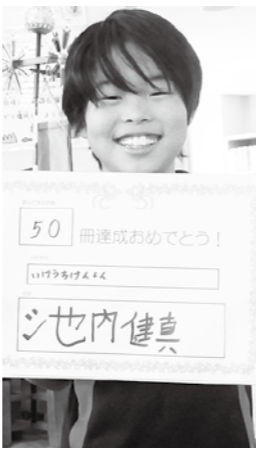 50 冊達成おめでとう!
いけうちけんしん
池内健真